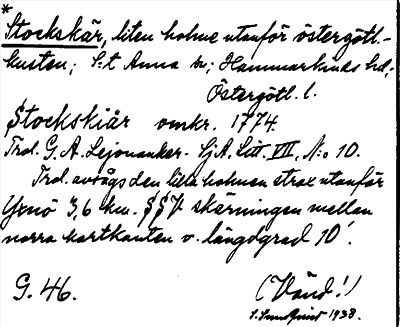 *
Stockskär, liten holme utanför östergötl.-
kusten; S:t Anna sn; Hammarkinds hd;
Östergötl. l.
Stockskiär omkr. 1774.
Trol. G. A. Lejonanker. SjA. Litt. VII, N:o 10.
Trol. avsågs den lilla holmen strax utanför
Yxnö 3,6 km. SSV skärningen mellan
norra kartkanten o. längdgrad 10´.
G. 46.
(Vänd!)
S. Lundquist 1938.